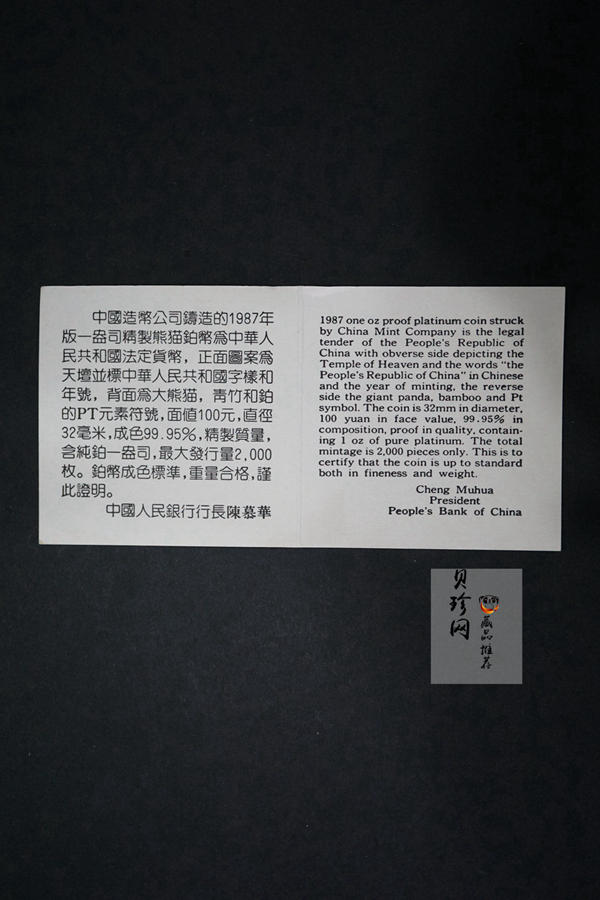 中國造幣公司鑄造的1987年
版一盎司精製熊猫鉑幣為中華人
民共和國法定貨幣，正面圖案為
天壇並標中華人民共和國字樣和
年號，背面為大熊猫，青竹和鉑
的PT元素符號，面値100元，直徑
32毫米，成色99.95%，精製質量，
含純鉑一盎司，最大發行量2,000
枚。鉑幣成色標準，重量合格，謹
此證明。
中國人民銀行行長陳慕華
1987 one oz proof platinum coin struck
by China Mint Company is the legal
tender of the People's Republic of
China with obverse side depicting the
Temple of Heaven and the words "the
People's Republic of China" in Chinese
and the year of minting, the reverse
side the giant panda, bamboo and Pt
symbol. The coin is 32mm in diameter,
100 yuan in face value, 99.95% in
composition, proof in quality, contain-
ing 1 oz of pure platinum. The total
mintage is 2,000 pieces only. This is to
certify that the coin is up to standard
both in fineness and weight.
Cheng Muhua
President
People's Bank of China
贝珍网
藏品推荐